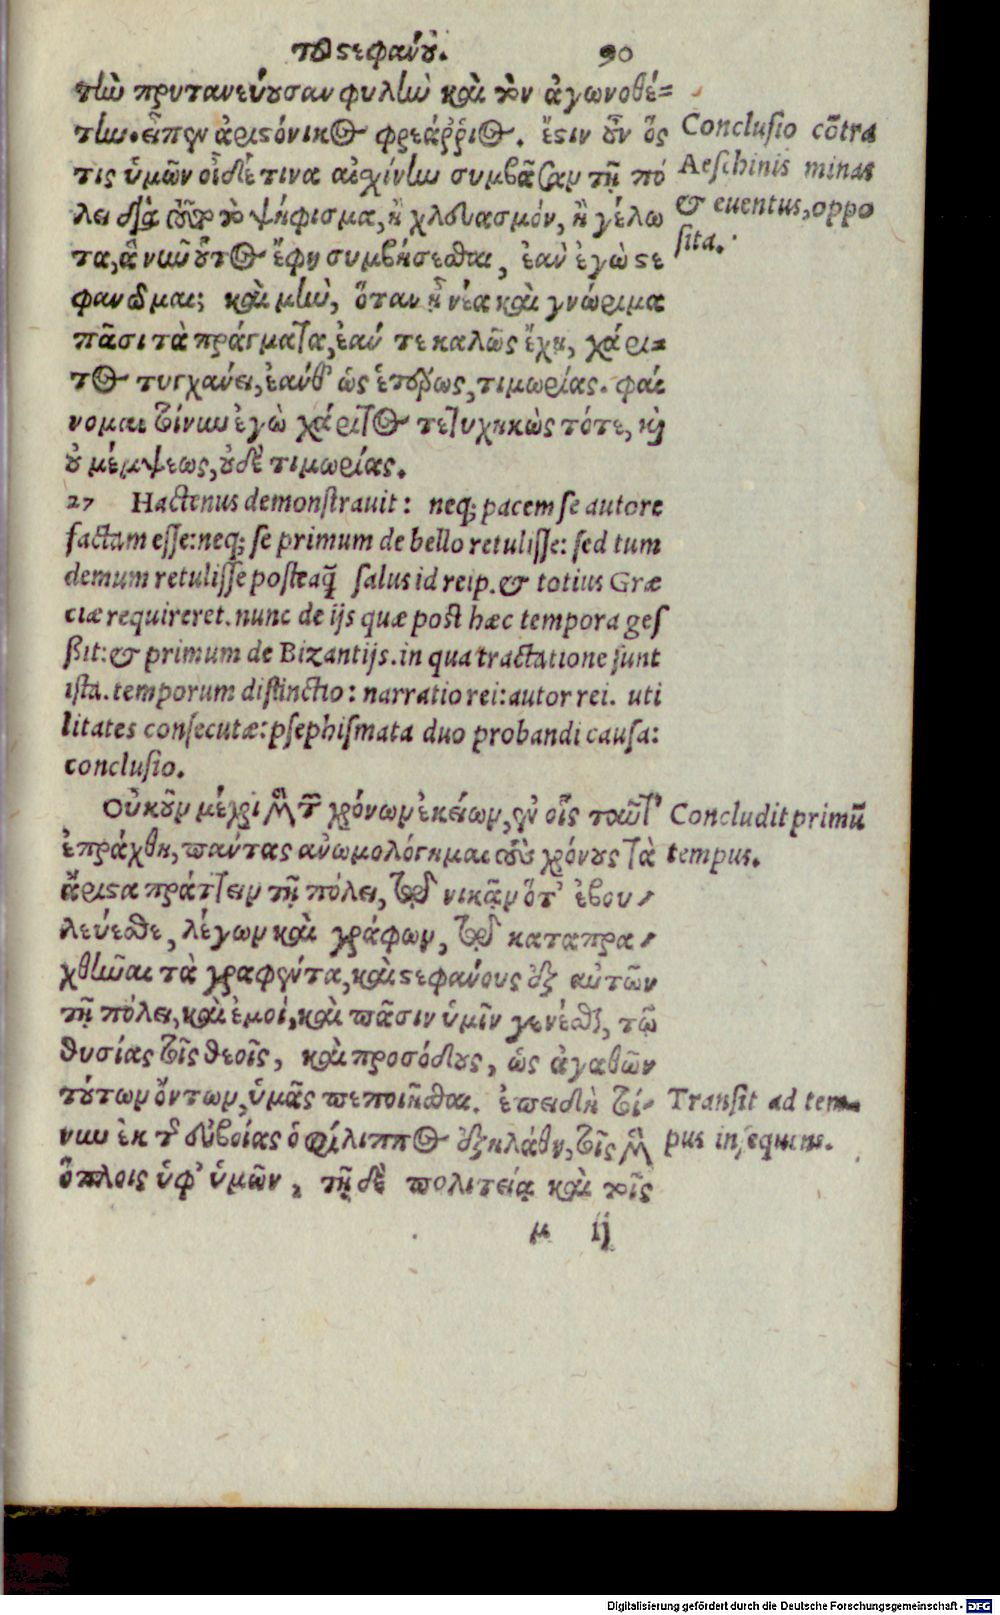 τοῦ στεφάνου. 90
τὴν πρυτανεύουσαν φυλὴν καὶ τὸν ἀγωνοθέ=
την. εἶπεν ἀριστόνικος φρεάῤῥιος. ἔστιν οὖν ὅς
τις ὑμῶν οἶδέ τινα αἰσχύνην συμβᾶσαν τῇ πό
λει διὰ τοῦτο τὸ ψήφισμα, ἢ χλευασμόν, ἢ γέλω
τα, ἃ νῦν οὗτος ἔφη συμβήσεσθαι, ἐὰν ἐγὼ στε
φανῶμαι; καὶ μὴν, ὅταν ᾖ νέα καὶ γνώριμα
πᾶσι τὰ πράγματα, ἐάν τε καλῶς ἔχῃ, χάρι=
τος τυγχάνει, ἐάνθ' ὡς ἑτέρως, τιμωρίας. φαί
νομαι τοίνυν ἐγὼ χάριτος τετυχηκὼς τότε, καὶ
οὐ μέμψεως, οὐδὲ τιμωρίας.
Conclusio cõtra
Aeschinis minas
& euentus, oppo
sita.
27 Hactenus demonstrauit: neq; pacem se autore
factam esse: neq; se primum de bello retulisse: sed tum
demum retulisse posteaq̃ salus id reip. & totius Græ
ciæ requireret. nunc de ijs quæ post hæc tempora ges
sit: & primum de Bizantijs. in qua tractatione sunt
ista. temporum distinctio: narratio rei: autor rei. uti
litates consecutæ: psephismata duo probandi causa:
conclusio.
Οὐκοῦν μέχρι μὲν τῶν χρόνων ἐκείνων, ἐν οἷς ταῦτ'
ἐπράχθη, πάντας ἀνωμολόγημαι τοὺς χρόνους τὰ
ἄριστα πράττειν τῇ πόλει, τῷ νικᾶν ὅτ' ἐβου-
λεύεσθε, λέγων καὶ γράφων, τῷ καταπρα-
χθῆναι τὰ γραφέντα, καὶ στεφάνους ἐξ αὐτῶν
τῇ πόλει, καὶ ἐμοί, καὶ πᾶσιν ὑμῖν γενέσθαι, τῷ
θυσίας τοῖς θεοῖς, καὶ προσόδους, ὡς ἀγαθῶν
τούτων ὄντων, ὑμᾶς πεποιῆσθαι. ἐπειδὴ τοί-
νυν ἐκ τῆς εὐβοίας ὁ φίλιππος ἐξηλάθη, τοῖς μὲν
ὅπλοις ὑφ' ὑμῶν, τῇ δὲ πολιτείᾳ καὶ τοῖς
Concludit primũ
tempus.
Transit ad tem-
pus insequens.
μ ij
Digitalisierung gefördert durch die Deutsche Forschungsgemeinschaft - DFG